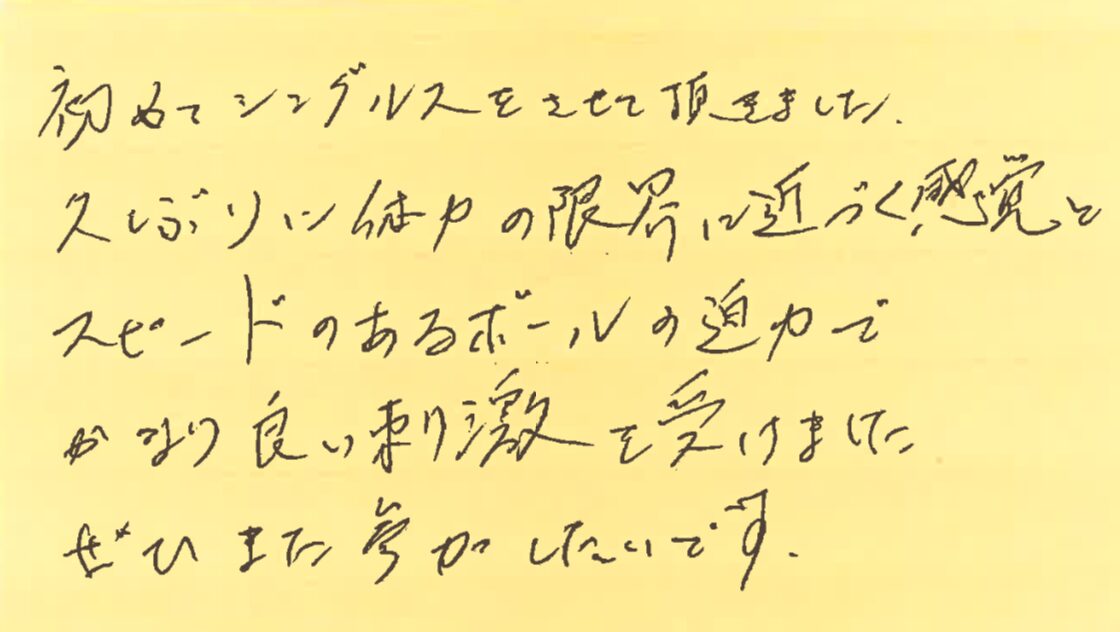 初めてシングルスをさせて頂きました.
久しぶりに体力の限界に近づく感覚と
スピードのあるボールの迫力で
かなり良い刺激を受けました
ぜひまた参加したいです.